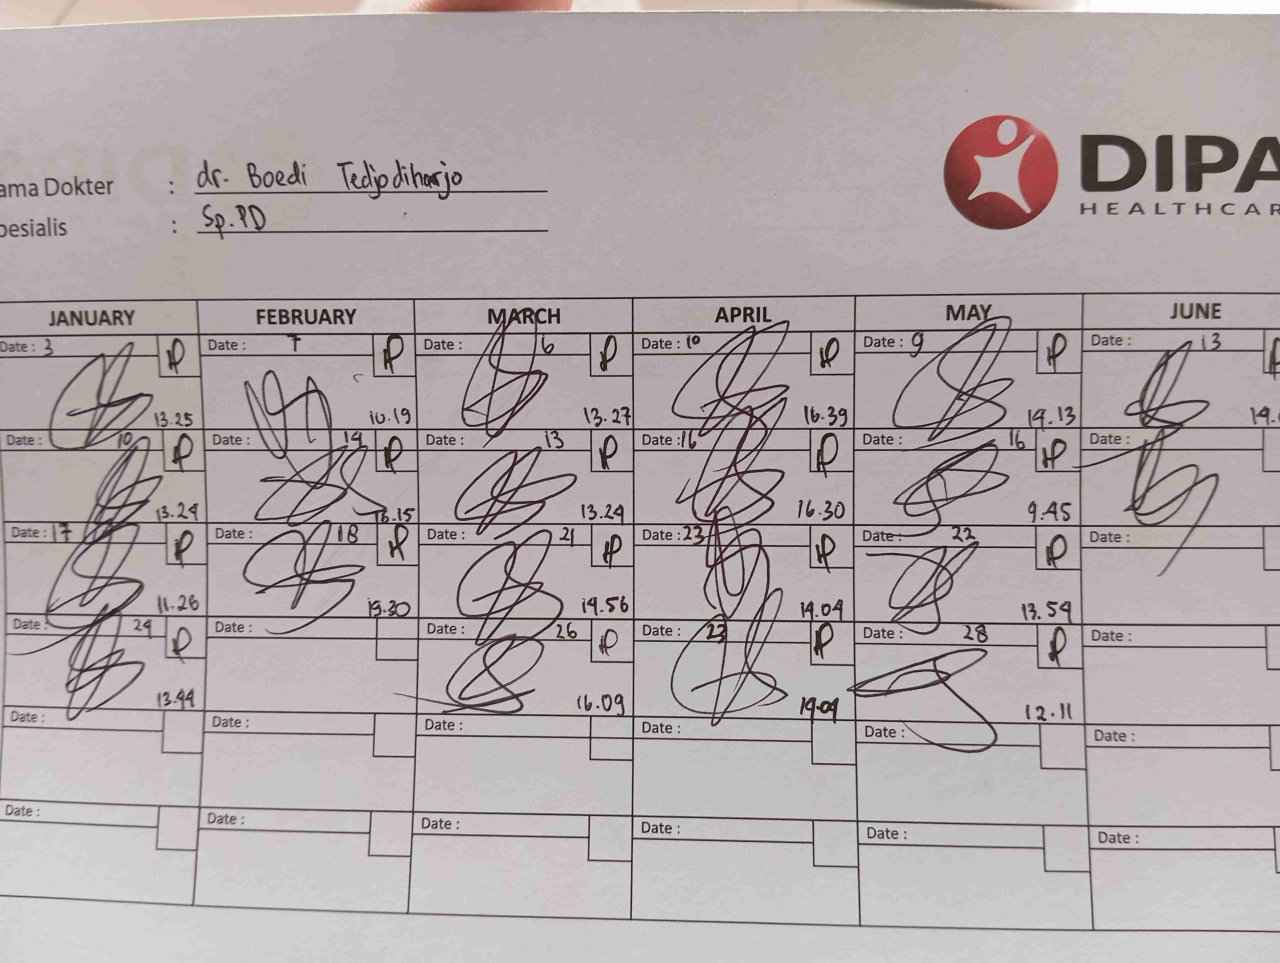 ama Dokter : dr. Boedi Tedjodiharjo
pesialis : Sp.PD
DIPA
HEALTHCAR
JANUARY FEBRUARY MARCH APRIL MAY JUNE
Date : 3 P Date : 7 P Date : 6 P Date : 10 P Date : 9 P Date : 13
13.25 10.19 13.27 16.39 14.13 14.
Date : 10 P Date : 14 P Date : 13 P Date : 16 P Date : 16 P Date :
13.24 16.15 13.24 16.30 9.45
Date : 17 P Date : 18 P Date : 21 P Date : 23 P Date : 22 P Date :
11.26 19.30 14.56 14.04 13.54
Date : 24 P Date : Date : 26 P Date : 23 P Date : 28 P Date :
13.44 16.09 14.04 12.11
Date : Date : Date : Date : Date : Date :
Date : Date : Date : Date : Date : Date :